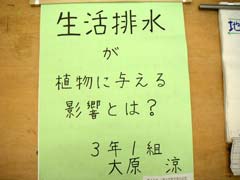 生活排水
が
植物に与える
影響とは？
3年1組
大原 涼
地